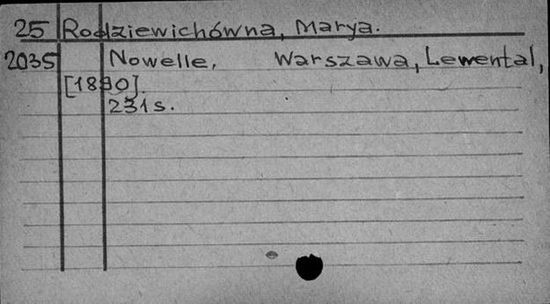 25 Rodziewichówna, Marya.
2035 Nowelle, Warszawa, Lewental,
[1890].
231 s.